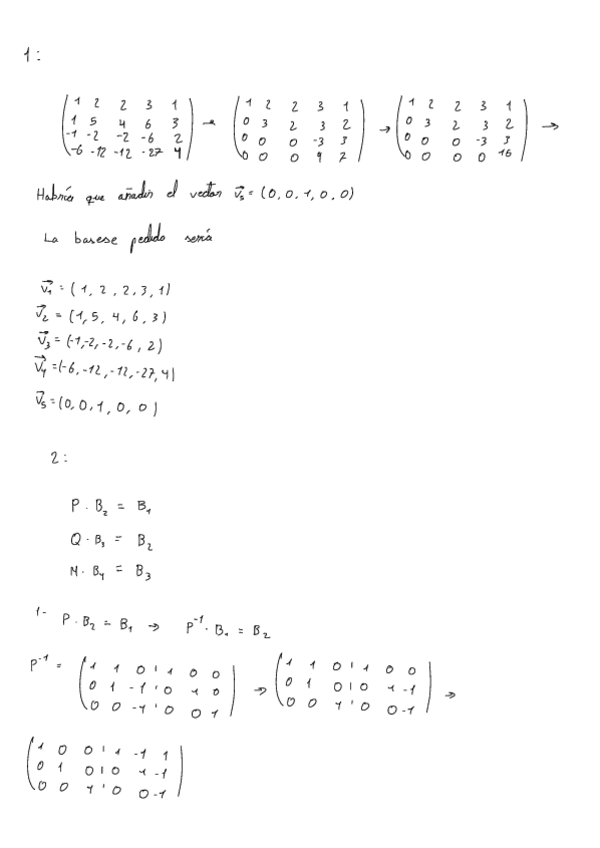 1:
( 1 2 2 3 1 ) → ( 1 2 2 3 1 ) → ( 1 2 2 3 1 ) →
( 1 5 4 6 3 ) ( 0 3 2 3 2 ) ( 0 3 2 3 2 )
( -1 -2 -2 -6 2 ) ( 0 0 0 -3 3 ) ( 0 0 0 -3 3 )
( -6 -12 -12 -27 4 ) ( 0 0 0 9 7 ) ( 0 0 0 0 16 )
Habría que añadir el vector v₅ = (0,0,1,0,0)
La basese pedido será
v₁ = (1, 2, 2, 3, 1)
v₂ = (1, 5, 4, 6, 3)
v₃ = (-1,-2,-2,-6, 2)
v₄ = (-6,-12,-12,-27,4)
v₅ = (0,0,1,0,0)
2:
P · B₂ = B₁
Q · B₃ = B₂
M · B₄ = B₃
1- P · B₂ = B₁ → P⁻¹ · B₁ = B₂
P⁻¹ = ( 1 1 0 | 1 0 0 ) → ( 1 1 0 | 1 0 0 ) →
( 0 1 -1 | 0 1 0 ) ( 0 1 0 | 0 1 -1 )
( 0 0 -1 | 0 0 1 ) ( 0 0 1 | 0 0 -1 )
( 1 0 0 | 1 -1 1 )
( 0 1 0 | 0 1 -1 )
( 0 0 1 | 0 0 -1 )